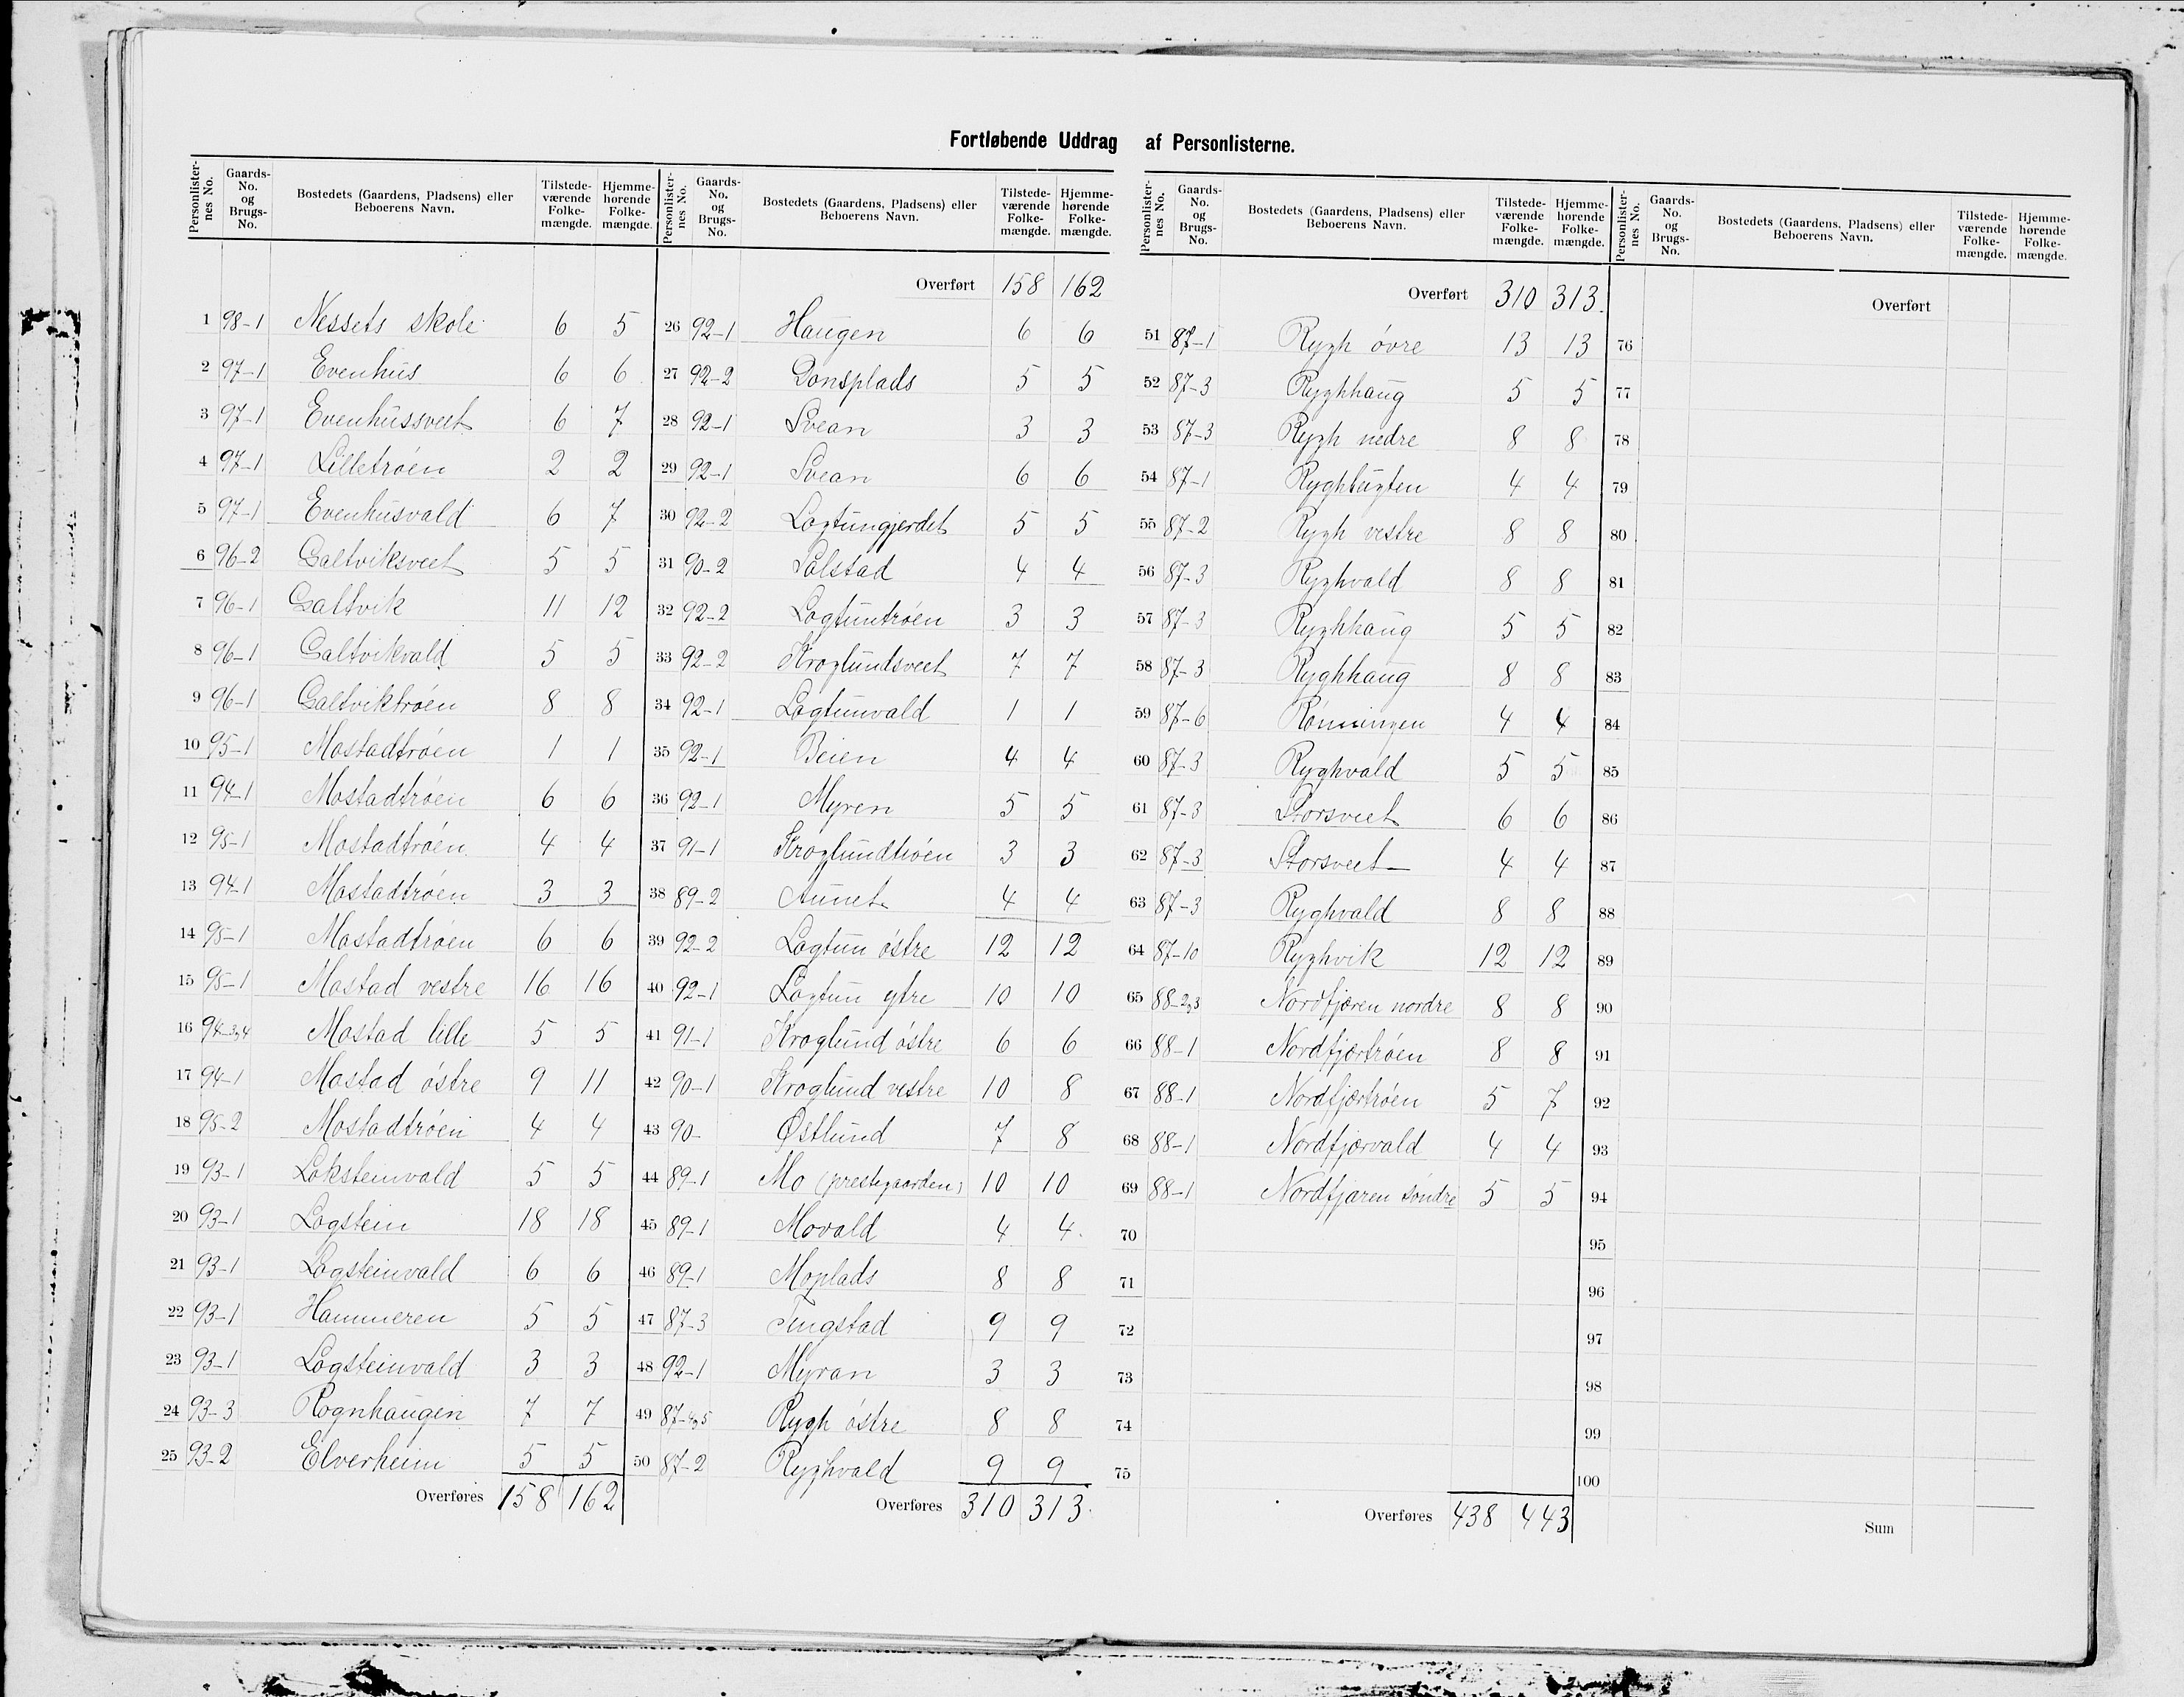 Fortløbende Uddrag af Personlisterne.
Personlisternes No. Gaards-No. og Brugs-No. Bostedets (Gaardens, Pladsens) eller Beboerens Navn. Tilstedeværende Folkemængde. Hjemmehørende Folkemængde.
1 98-1 Nessets skole 6 5
2 97-1 Evenhus 6 6
3 97-1 Evenhussveet 6 7
4 97-1 Lilletrøen 2 2
5 97-1 Evenhusvald 6 7
6 96-2 Galtviksveet 5 5
7 96-1 Galtvik 11 12
8 96-1 Galtvikvald 5 5
9 96-1 Galtviktrøen 8 8
10 95-1 Mostadtrøen 1 1
11 94-1 Mostadtrøen 6 6
12 95-1 Mostadtrøen 4 4
13 94-1 Mostadtrøen 3 3
14 95-1 Mostadtrøen 6 6
15 95-1 Mostad vestre 16 16
16 94-3,4 Mostad lille 5 5
17 94-1 Mostad østre 9 11
18 95-2 Mostadtrøen 4 4
19 93-1 Loksteinvald 5 5
20 93-1 Logstein 18 18
21 93-1 Logsteinvald 6 6
22 93-1 Hammeren 5 5
23 93-1 Logsteinvald 3 3
24 93-3 Rognhaugen 7 7
25 93-2 Elverheim 5 5
Overføres 158 162
Personlisternes No. Gaards-No. og Brugs-No. Bostedets (Gaardens, Pladsens) eller Beboerens Navn. Tilstedeværende Folkemængde. Hjemmehørende Folkemængde.
Overført 158 162
26 92-1 Haugen 6 6
27 92-2 Donsplads 5 5
28 92-1 Svean 3 3
29 92-1 Svean 6 6
30 92-2 Logtungjerdet 5 5
31 90-2 Solstad 4 4
32 92-2 Logtuntrøen 3 3
33 92-2 Kroglundsveet 7 7
34 92-1 Logtunvald 1 1
35 92-1 Beien 4 4
36 92-1 Myren 5 5
37 91-1 Kroglundtrøen 3 3
38 89-2 Aunet 4 4
39 92-2 Logtun østre 12 12
40 92-1 Logtun ytre 10 10
41 91-1 Kroglund østre 6 6
42 90-1 Kroglund vestre 10 8
43 90- Østlund 7 8
44 89-1 Mo (prestegaarden) 10 10
45 89-1 Movald 4 4
46 89-1 Moplads 8 8
47 87-3 Tingstad 9 9
48 92-1 Myran 3 3
49 87-4,5 Rygh østre 8 8
50 87-2 Ryghvald 9 9
Overføres 310 313
Personlisternes No. Gaards-No. og Brugs-No. Bostedets (Gaardens, Pladsens) eller Beboerens Navn. Tilstedeværende Folkemængde. Hjemmehørende Folkemængde.
Overført 310 313
51 87-1 Rygh øvre 13 13
52 87-3 Ryghhaug 5 5
53 87-3 Rygh nedre 8 8
54 87-1 Ryghbugten 4 4
55 87-2 Rygh vestre 8 8
56 87-3 Ryghvald 8 8
57 87-3 Ryghhaug 5 5
58 87-3 Ryghhaug 8 8
59 87-6 Rønningen 4 4
60 87-3 Ryghvald 5 5
61 87-3 Storsveet 6 6
62 87-3 Storsveet 4 4
63 87-3 Ryghvald 8 8
64 87-10 Ryghvik 12 12
65 88-2,3 Nordfjæren nordre 8 8
66 88-1 Nordfjærtrøen 8 8
67 88-1 Nordfjærtrøen 5 7
68 88-1 Nordfjærvald 4 4
69 88-1 Nordfjæren søndre 5 5
70
71
72
73
74
75
Overføres 438 443
Personlisternes No. Gaards-No. og Brugs-No. Bostedets (Gaardens, Pladsens) eller Beboerens Navn. Tilstedeværende Folkemængde. Hjemmehørende Folkemængde.
Overført
76
77
78
79
80
81
82
83
84
85
86
87
88
89
90
91
92
93
94
95
96
97
98
99
100
Sum